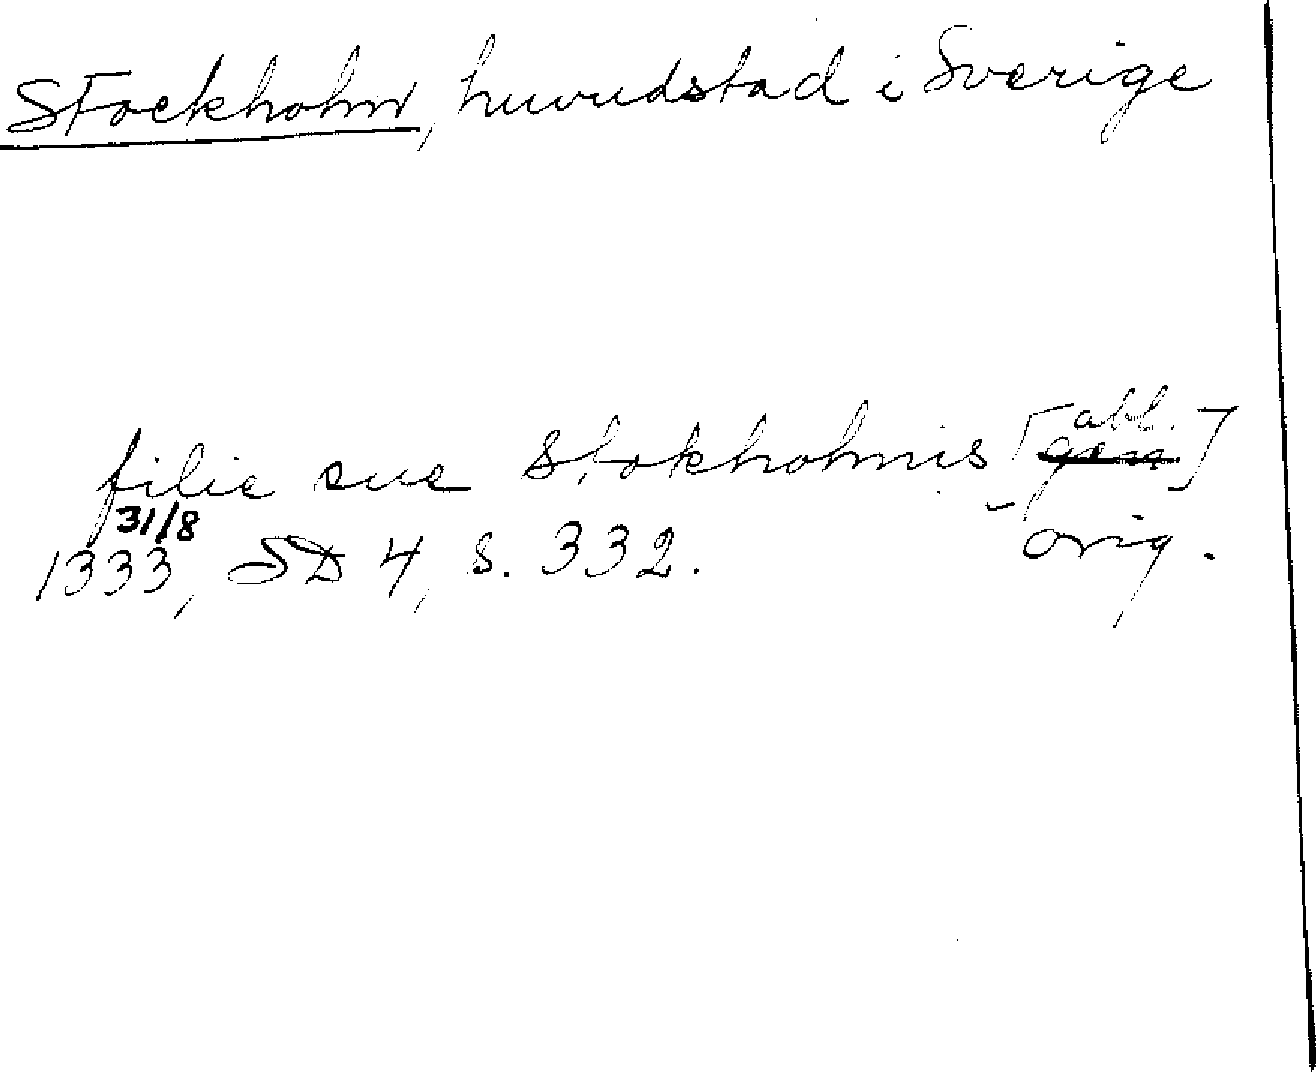 Stockholm, huvudstad i Sverige
abl.
filie sue Stokholmis [gen]
31/8
1333, SD 4, s. 332. orig.